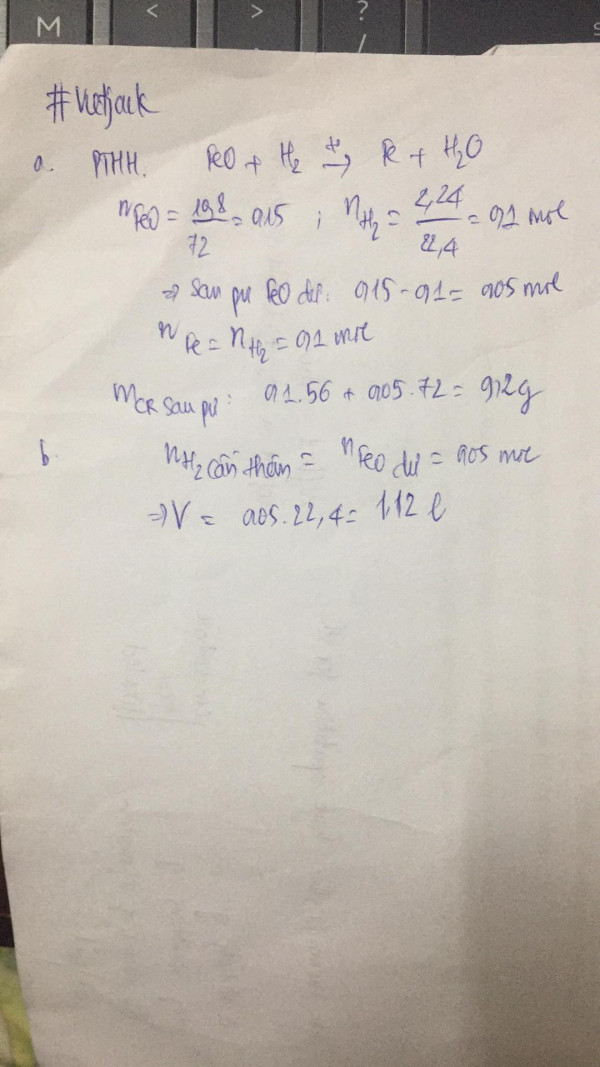 M < > ? /
#Vietjack
a. PTHH. FeO + H₂ →(t°) Fe + H₂O
n FeO = 10,8/72 = 0,15 ; n H₂ = 2,24/22,4 = 0,1 mol
=> Sau pư FeO dư: 0,15 - 0,1 = 0,05 mol
n Fe = n H₂ = 0,1 mol
m CR sau pư: 0,1.56 + 0,05.72 = 9,2g
b. n H₂ cần thêm = n FeO dư = 0,05 mol
=> V = 0,05.22,4 = 1,12 l